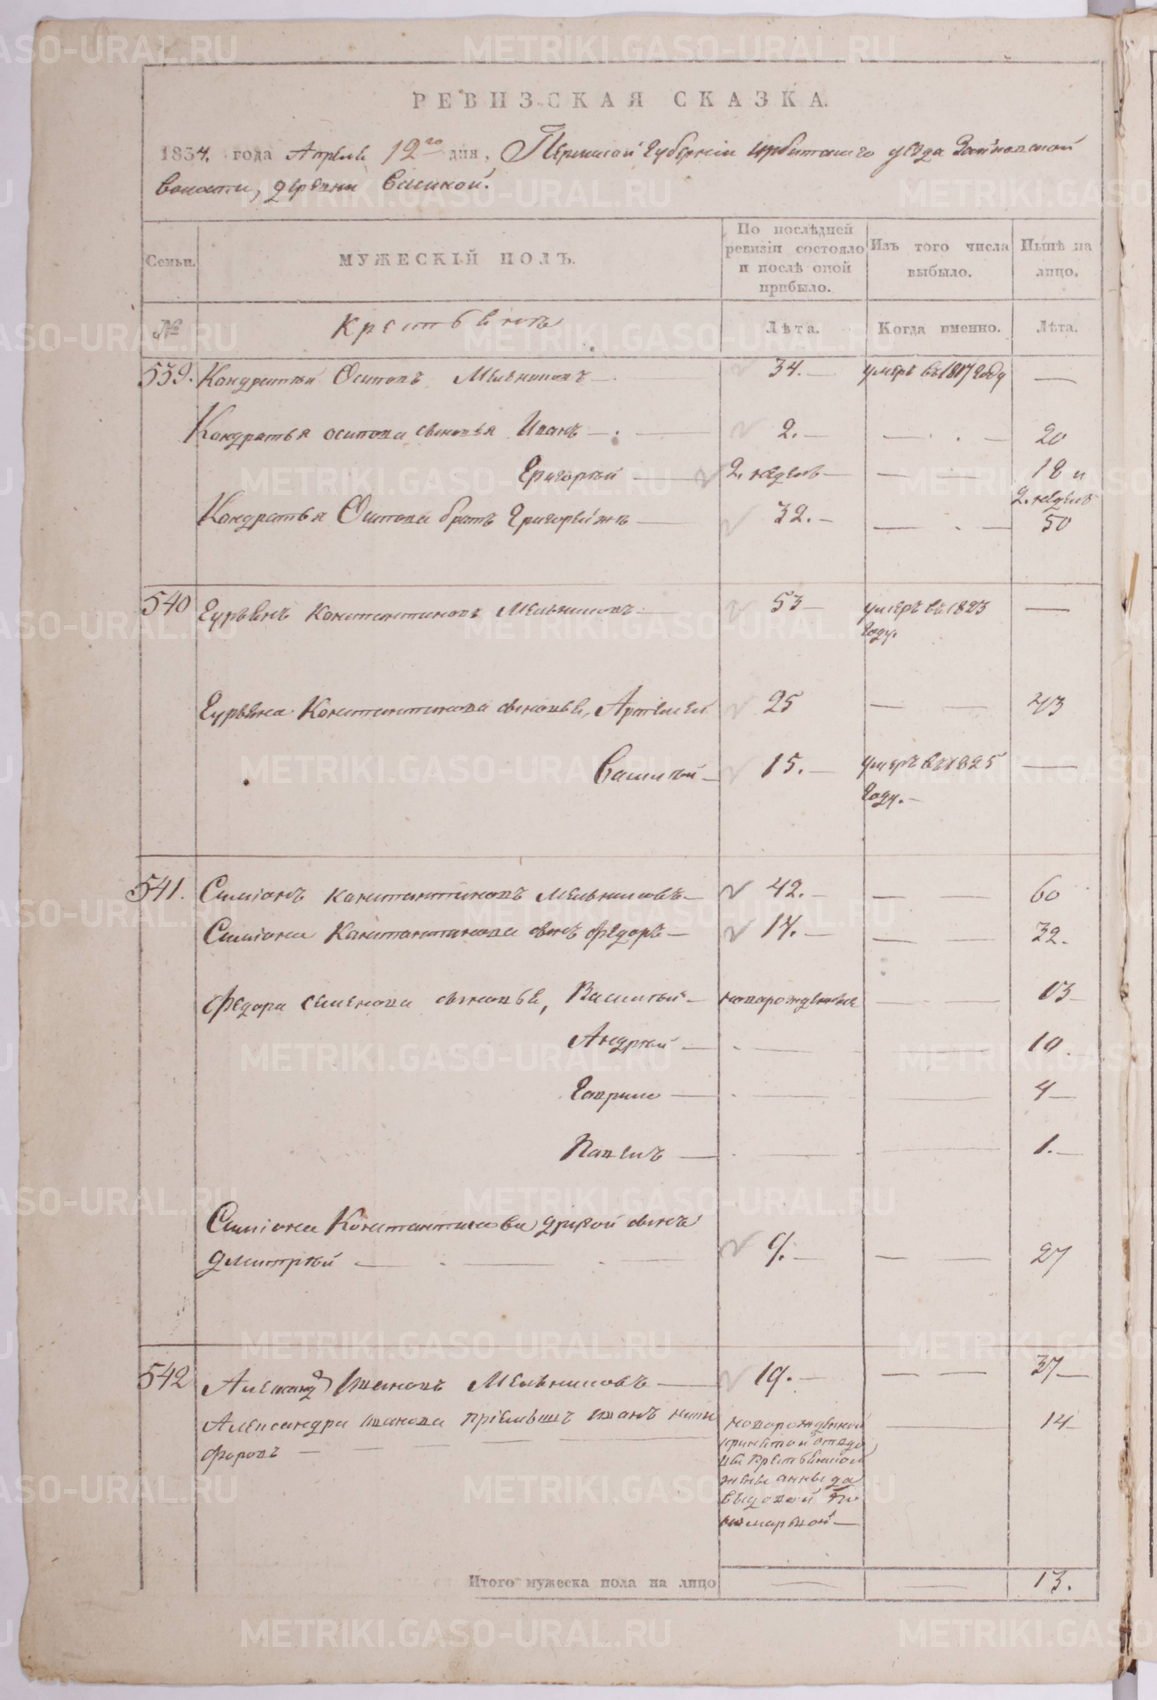 РЕВИЗСКАЯ СКАЗКА.
1834. года Апреля 12го дня, Пермской губернии ирбитского уезда
волости, деревни
Семьи.
МУЖЕСКІЙ ПОЛЪ.
По послѣдней ревизіи состояло и послѣ оной прибыло.
Изъ того числа выбыло.
Нынѣ на лицо.
№
Крестьяне
Лѣта.
Когда именно.
Лѣта.
539. Кондратий Осиповъ Мельниковъ 34. умеръ въ 1817 году
Кондратья осипова сыновья Иванъ 2. 20
Григорий 2. недель 18 и 2. недель
Кондратья Осипова братъ Григорий 32. 50
540 Гурьянъ Константиновъ Мельниковъ 53 умеръ въ 1823 году.
Гурьяна Константинова сыновья, Артемий 25 43
Василий 15. умеръ въ 1825 году.
541. Симіонъ Константиновъ Мельниковъ 42. 60
Симіона Константинова сынъ федоръ 14. 32.
федора семенова сыновья, Василий новорожденные 13
Андрей 10.
Гаврило 4
Павелъ 1.
Симіона Константинова другой сынъ
дмитрий 9. 27
542 Александръ Ивановъ Мельниковъ 19. 37
Александра Иванова приемышъ Иванъ ники
форовъ
новорожденной 14
принятой отвдо
вы крестьянской
жены анны да
выдовой По
номаревой
Итого мужеска пола на лицо 13.
METRIKI.GASO-URAL.RU